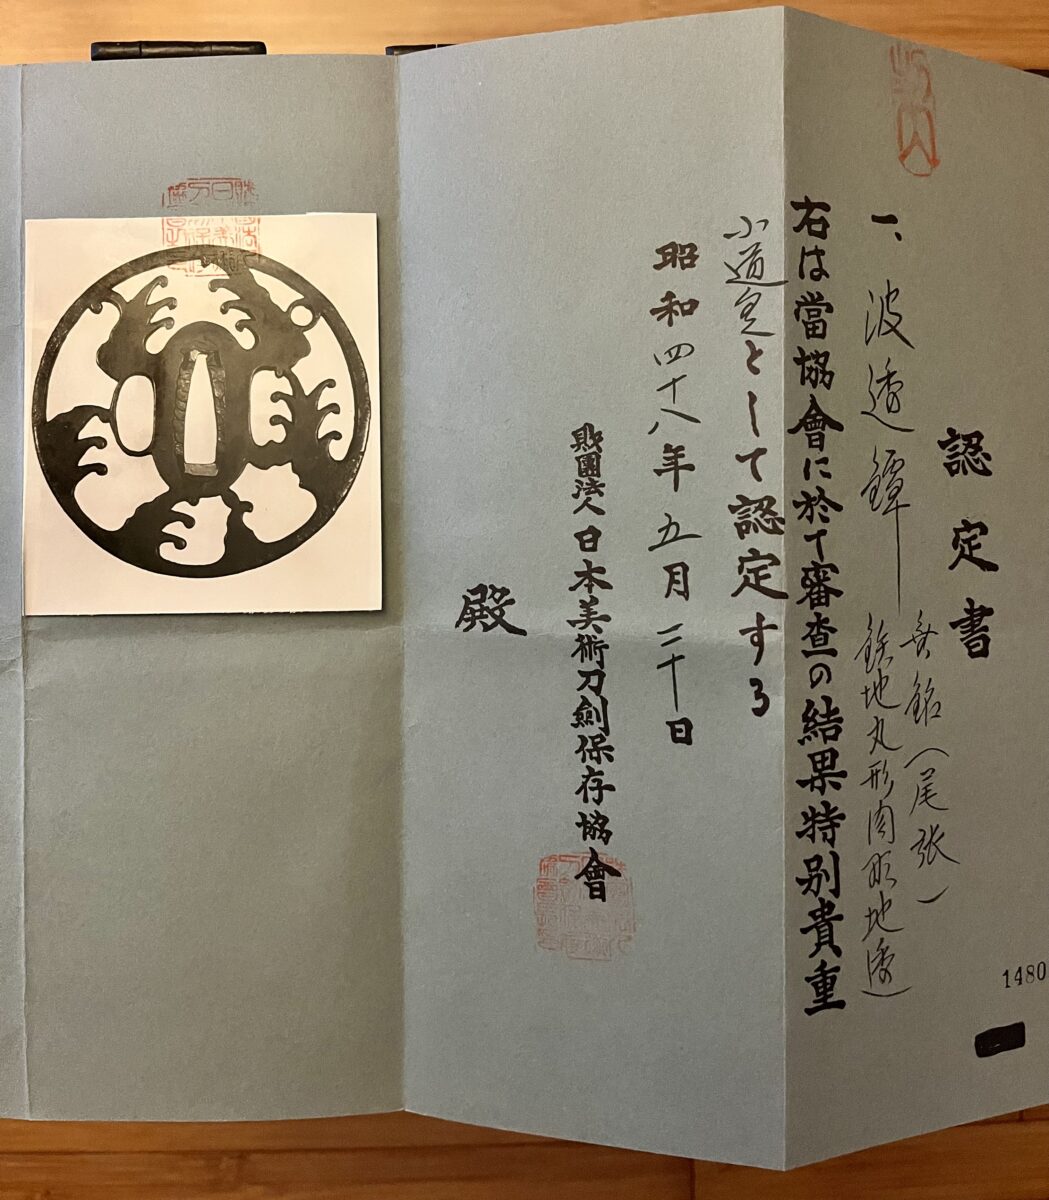 認定書
一、波透鐔 無銘(尾張)
鉄地丸形肉彫地透
右は當協會に於て審査の結果特別貴重
小道具として認定する
昭和四十八年五月三十日
財團法人日本美術刀劍保存協會
殿
1480